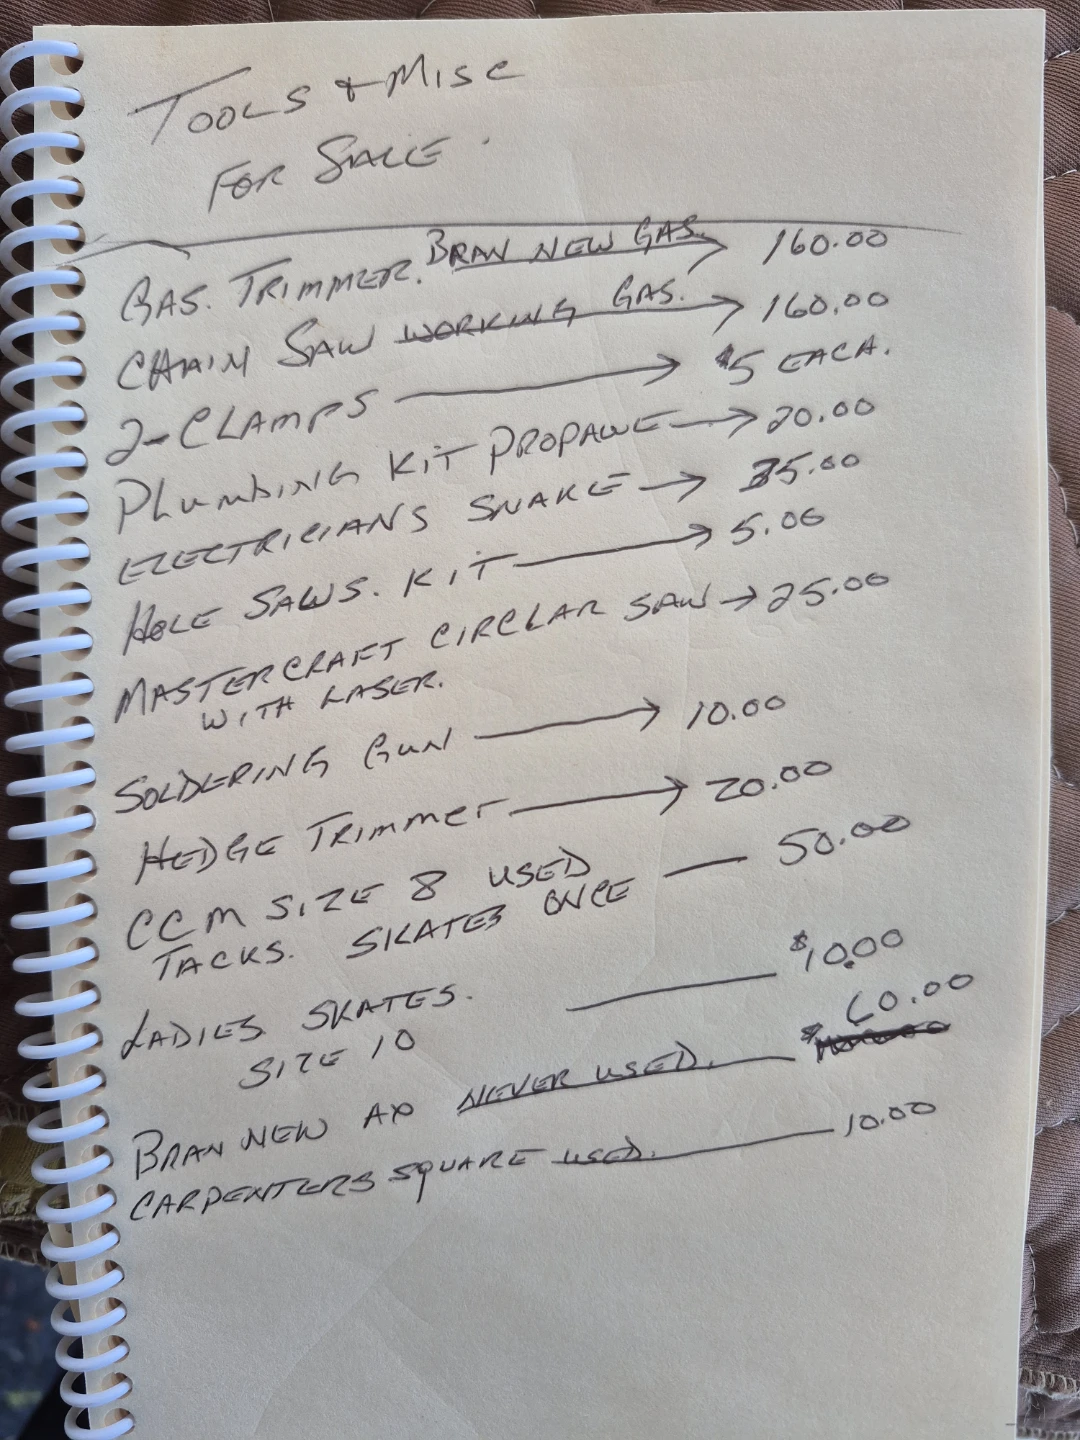 TOOLS & MISC
FOR SALE.
GAS. TRIMMER. BRAN NEW GAS. → 160.00
CHAIN SAW WORKING GAS. → 160.00
2-CLAMPS → $5 EACH.
PLUMBING KIT PROPANE → 20.00
ELECTRICIANS SNAKE → 35.00
HOLE SAWS. KIT → 5.00
MASTERCRAFT CIRCLAR SAW → 25.00
WITH LASER.
SOLDERING GUN → 10.00
HEDGE TRIMMER → 20.00
CCM SIZE 8 USED — 50.00
TACKS. SKATES ONCE
LADIES SKATES. — $10.00
SIZE 10
BRAN NEW AX NEVER USED. — $ 60.00
CARPENTERS SQUARE USED. — 10.00